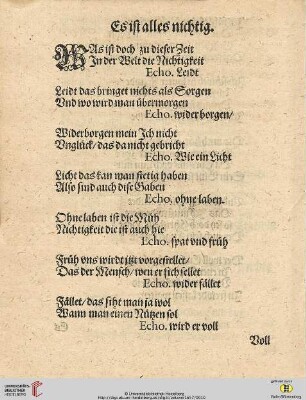 Es ist alles nichtig.
WAs ist doch zu dieser Zeit
In der Welt die Nichtigkeit
Echo. Leidt
Leidt das bringet nichts als Sorgen
Vnd wo wird man übermorgen
Echo. wider borgen/
Widerborgen mein Ich nicht
Vnglück/das da nicht gebricht
Echo. Wie ein Licht
Licht das kan man stetig haben
Also sind auch dise Gaben
Echo. ohne laben.
Ohne laben ist die Müh
Nichtigkeit die ist auch hie
Echo. spat und früh
Früh vns wirdt itzt vorgestellet/
Das der Mensch/wen er sich stellet
Echo. wider fället
Fället/das siht man ja wol
Wann man einen Nützen sol
Echo. wird er voll
Voll
UNIVERSITÄTS-
BIBLIOTHEK
HEIDELBERG
© Universitätsbibliothek Heidelberg